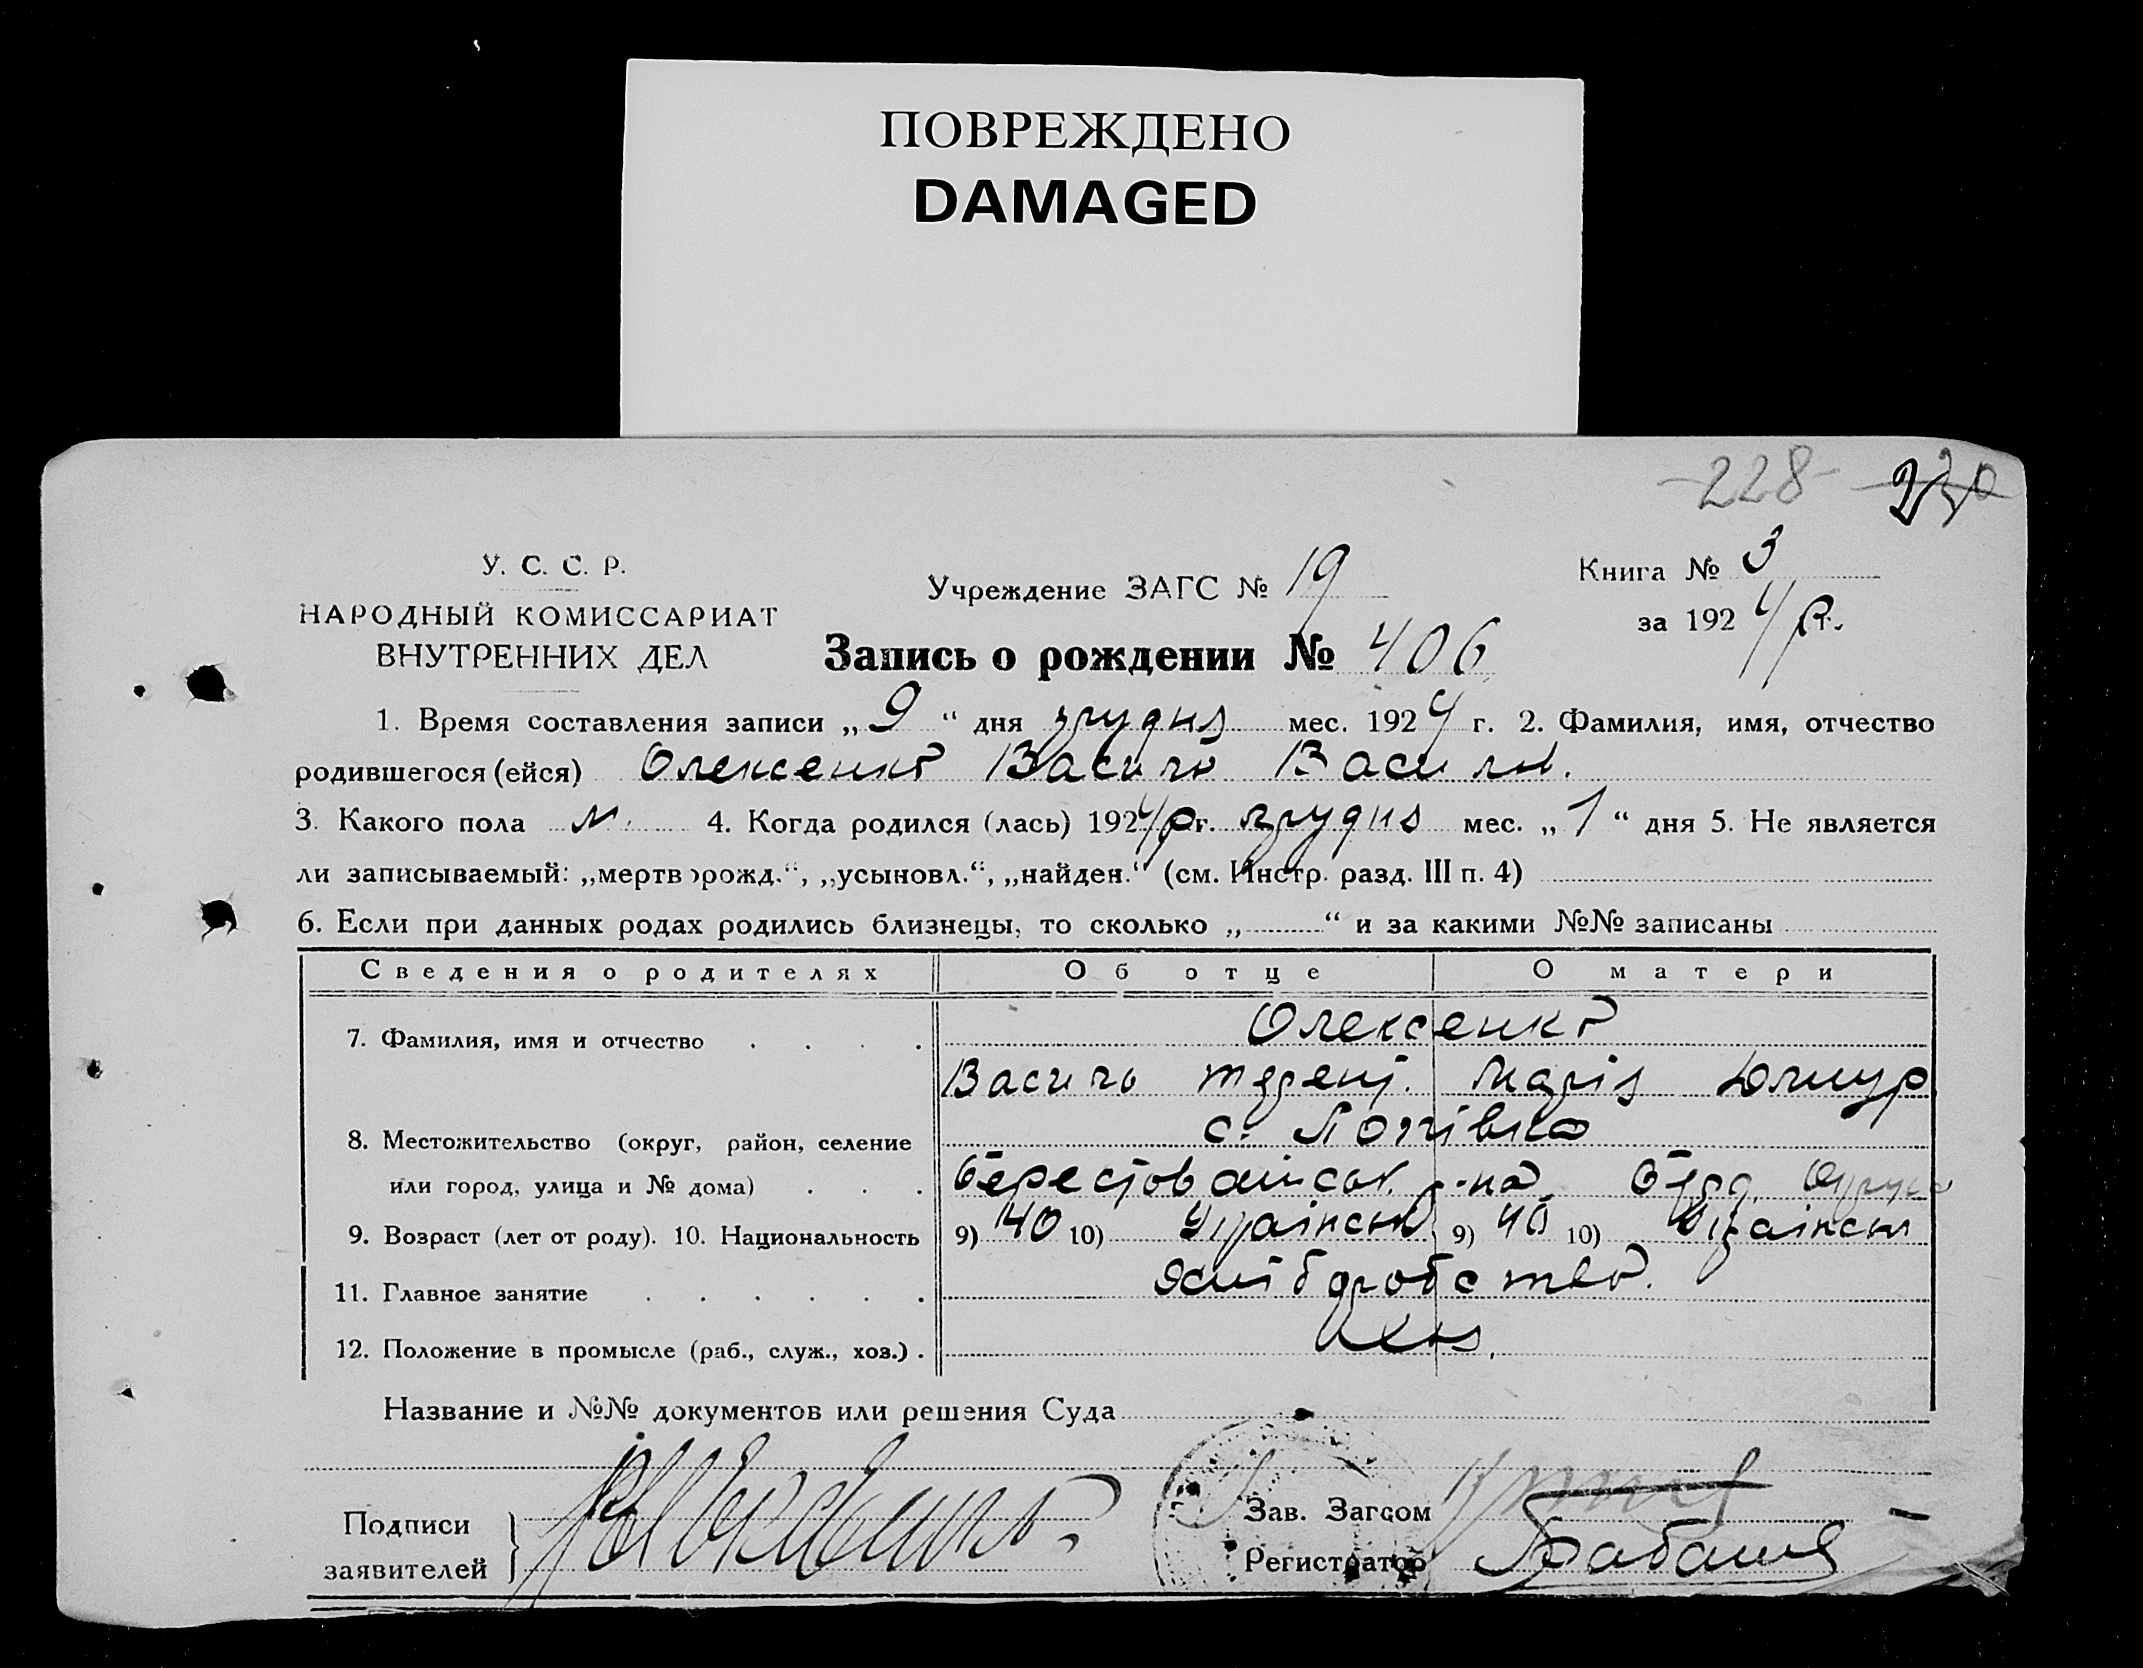 ПОВРЕЖДЕНО
DAMAGED
-228- 230
У. С. С. Р.
НАРОДНЫЙ КОМИССАРИАТ
ВНУТРЕННИХ ДЕЛ
Учреждение ЗАГС № 19
Книга № 3
за 1924 р.
Запись о рождении № 406
1. Время составления записи „ 9 “ дня грудня мес. 1924 г. 2. Фамилия, имя, отчество
родившегося (ейся) Олексенко Василь Васильов.
3. Какого пола м. 4. Когда родился (лась) 1924 р г. грудня мес. „ 1 “ дня 5. Не является
ли записываемый: „мертворожд.“, „усыновл.“, „найден.“ (см. Инстр. разд. III п. 4)
6. Если при данных родах родились близнецы, то сколько „ “ и за какими №№ записаны
Сведения о родителях Об отце О матери
7. Фамилия, имя и отчество . . . . Олексенко
Василь Терент. Марія
8. Местожительство (округ, район, селение с.
или город, улица и № дома) . . . Берестов р-на, Берд. Округи
9. Возраст (лет от роду). 10. Национальность 9) 40 10) Українськ 9) 40 10) Українськ
11. Главное занятие . . . . . . Хліборобство.
12. Положение в промысле (раб., служ., хоз.) .
Название и №№ документов или решения Суда
Подписи
заявителей
Зав. Загсом
Регистратор